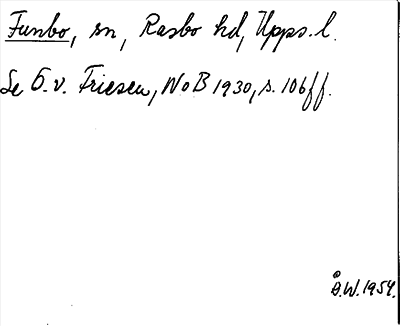 Funbo, sn, Rasbo hd, Upps. l.
Se O. v. Friesen, NoB 1930, s. 106 ff.
Å.W. 1954.